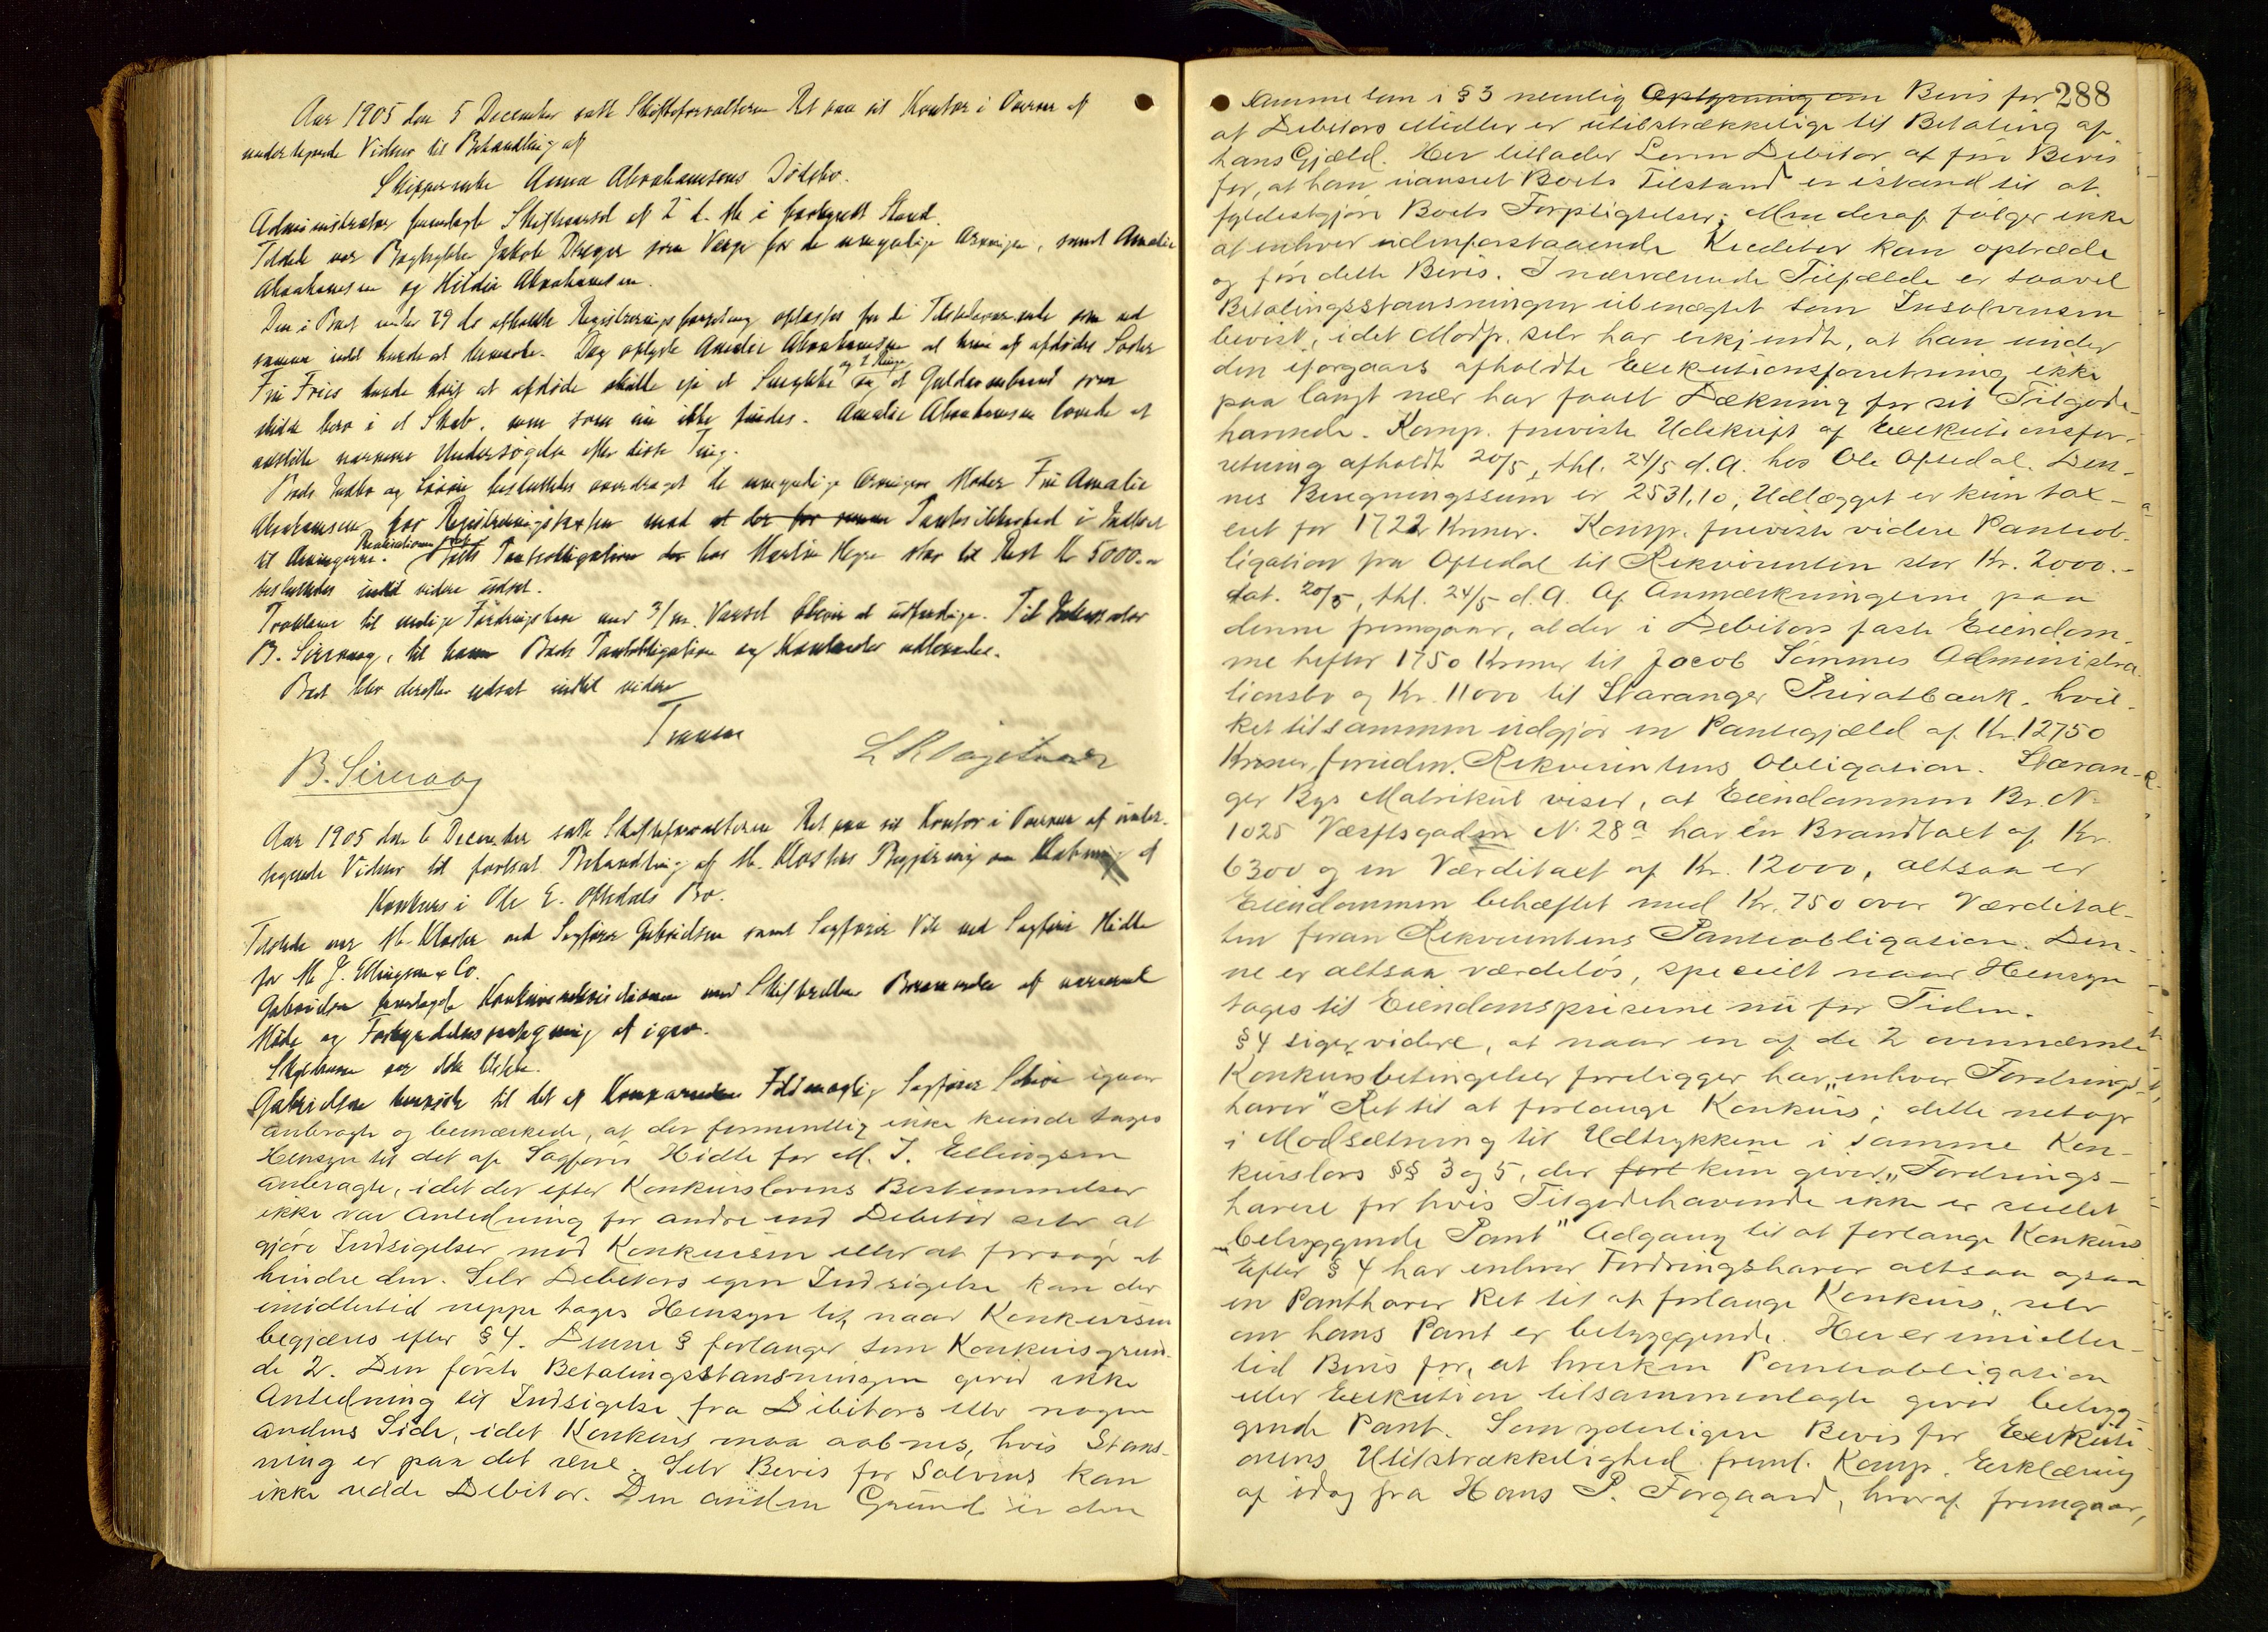 Aar 1905 den 5 December satte Skifteforvalteren Ret paa sit Kontor i Overvær af
undertegnede Vidner til Behandling af
Skipperenke Anna Abrahamsens Dödsbo.
Administrator fremlagde Skiftevarsel af 2 d. M. i forkyndt Stand.
Tilstede var Jakob Dreyer som Verge for de umyndige Arvinger, samt Amalie
Abrahamsen og Hilda Abrahamsen.
Den i Boet under 29 ds afholdte Registreringsforretning oplæstes for de Tilstedeværende som ved
samme intet havde at bemærke. Dog oplyste Amalie Abrahamsen at hun af afdödes Söster
Fru Friis havde hört at afdöde skulde eie et og 2 Ringe og et Guldarmbaand som
skulde bero i et Skab, men som nu ikke findes. Amalie Abrahamsen lovede at
anstille nærmere Undersögelse efter disse Ting.
Boets Indbo og Lösöre besluttedes overdraget de umyndige Arvingers Moder Fru Amalie
Abrahamsen for Registreringstaxten mod at der for samme Pantesikkerhed i Indboet
til Arvingerne. Realisationen af Boets Pantobligation der hos Martin Hegre stor til Rest Kr 5000.-
besluttedes indtil videre udsat.
Proklama til mulige Fordringshavere med 3/m. Varsel blev at udfærdige. Til
B. Sirevaag, til ham Boets Pantobligation og Kontanter udleveredes.
Boet blev derefter udsat indtil videre
B. Sirevaag
Aar 1905 den 6 December satte Skifteforvalteren Ret paa sit Kontor i Overvær af under-
tegnede Vidner til fortsat Behandling af M. Klosters Begjæring om Aabning af
Konkurs i Ole E. Oftedals Bo.
Tilstede var M. Kloster ved Sagförer Gabrielsen samt Sagförer ved Sagförer Hidle
for M. J. Ellingsen & Co.
Gabrielsen fremlagde med Skifterettens Berammelse af nærværende
Möde og Forkyndelsespaategning af igaar.
Skyldneren var ikke tilstede.
Gabrielsen henviste til det af Konkursen Sagförer igaar
anbragte og bemærkede, at der formentlig ikke kunde tages
Hensyn til det af Sagförer Hidle for M. J. Ellingsen
anbragte, idet der efter Konkurslovens Bestemmelser
ikke var Anledning for andre end Debitor selv at
gjöre Indsigelser mod Konkursen eller at forsöge at
hindre den. Selv Debitors egen Indsigelse kan der
imidlertid neppe tages Hensyn til, naar Konkursen
begjæres efter § 4. Denne § forlanger som Konkursgrun-
de 2. Den förste Betalingsstansningen giver ikke
Anledning til Indsigelse fra Debitors eller nogen
andens Side, idet Konkurs maa aabnes, hvis Stans-
ning er paa det rene. Selv Bevis for Solvens kan
ikke redde Debitor. Den anden Grund er den
288
samme som i § 3 nemlig Oplysning om Bevis for
at Debitors Midler er utilstrækkelige til Betaling af
hans Gjæld. Her tillader Loven Debitor at före Bevis
for, at han uanseet Boets Tilstand er istand til at
fyldestgjöre Boets Forpligtelser; Men deraf fölger ikke
at enhver udenforstaaende Kreditor kan optræde
og före dette Bevis. I nærværende Tilfælde er saavel
Betalingsstansningen ubenægtet som Insolvensen
bevist, idet Modp. selv har erkjendt, at han under
den iforgaars afholdte Exekutionsforretning ikke
paa langt nær har faaet Dækning for sit Tilgode-
havende. Komp. fremviste Udskrift af Exekutionsfor-
retning afholdt 20/5, thl. 24/5 d. A. hos Ole Oftedal. Den-
nes Beregningssum er 2531,10, Udlægget er kun tax-
eret for 1722 Kroner. Komp. fremviste videre Panteob-
ligation fra Oftedal til Rekvirenten stor Kr. 2000.-
dat. 20/5, thl. 24/5 d. A. Af Anmærkningerne paa
denne fremgaar, at der i Debitors faste Eiendom-
me hefter 1750 Kroner til Jacob Sömmes Administra-
tionsbo og Kr. 11000 til Stavanger Privatbank, hvil-
ket tilsammen udgjör en Pantegjæld af Kr. 12750
Kroner foruden Rekvirentens Obligation. Stavan-
ger Bys Matrikul viser, at Eiendommen Br. N.
1025 Værftsgaden N. 28a har en Brandtaxt af Kr.
6300 og en Værditaxt af Kr. 12000, altsaa er
Eiendommen behæftet med Kr. 750 over Værditax-
ten foran Rekvirentens Panteobligation. Den-
ne er altsaa værdelös, specielt naar Hensyn
tages til Eiendomspriserne nu for Tiden.
§ 4 siger videre, at naar en af de 2 ovennævnte
Konkursbetingelser foreligger har „enhver Fordrings-
haver" Ret til at forlange Konkurs; dette netop
i Modsætning til Udtrykkene i samme Kon-
kurslovs §§ 3 og 5, der fort kun giver „Fordrings-
havere for hvis Tilgodehavende ikke er stillet
betryggende Pant" Adgang til at forlange Konkurs
Efter § 4 har enhver Fordringshaver altsaa ogsaa
en Panthaver Ret til at forlange Konkurs, selv
om hans Pant er betryggende. Her er imidler-
tid Bevis for, at hverken Panteobligation
eller Exekution tilsammenlagte giver betryg-
gende Pant. Som yderligere Bevis for Exekuti-
onens Utilstrækkelighed freml. Komp. Erklæring
af idag fra Hans P. Forgaard, hvoraf fremgaar,